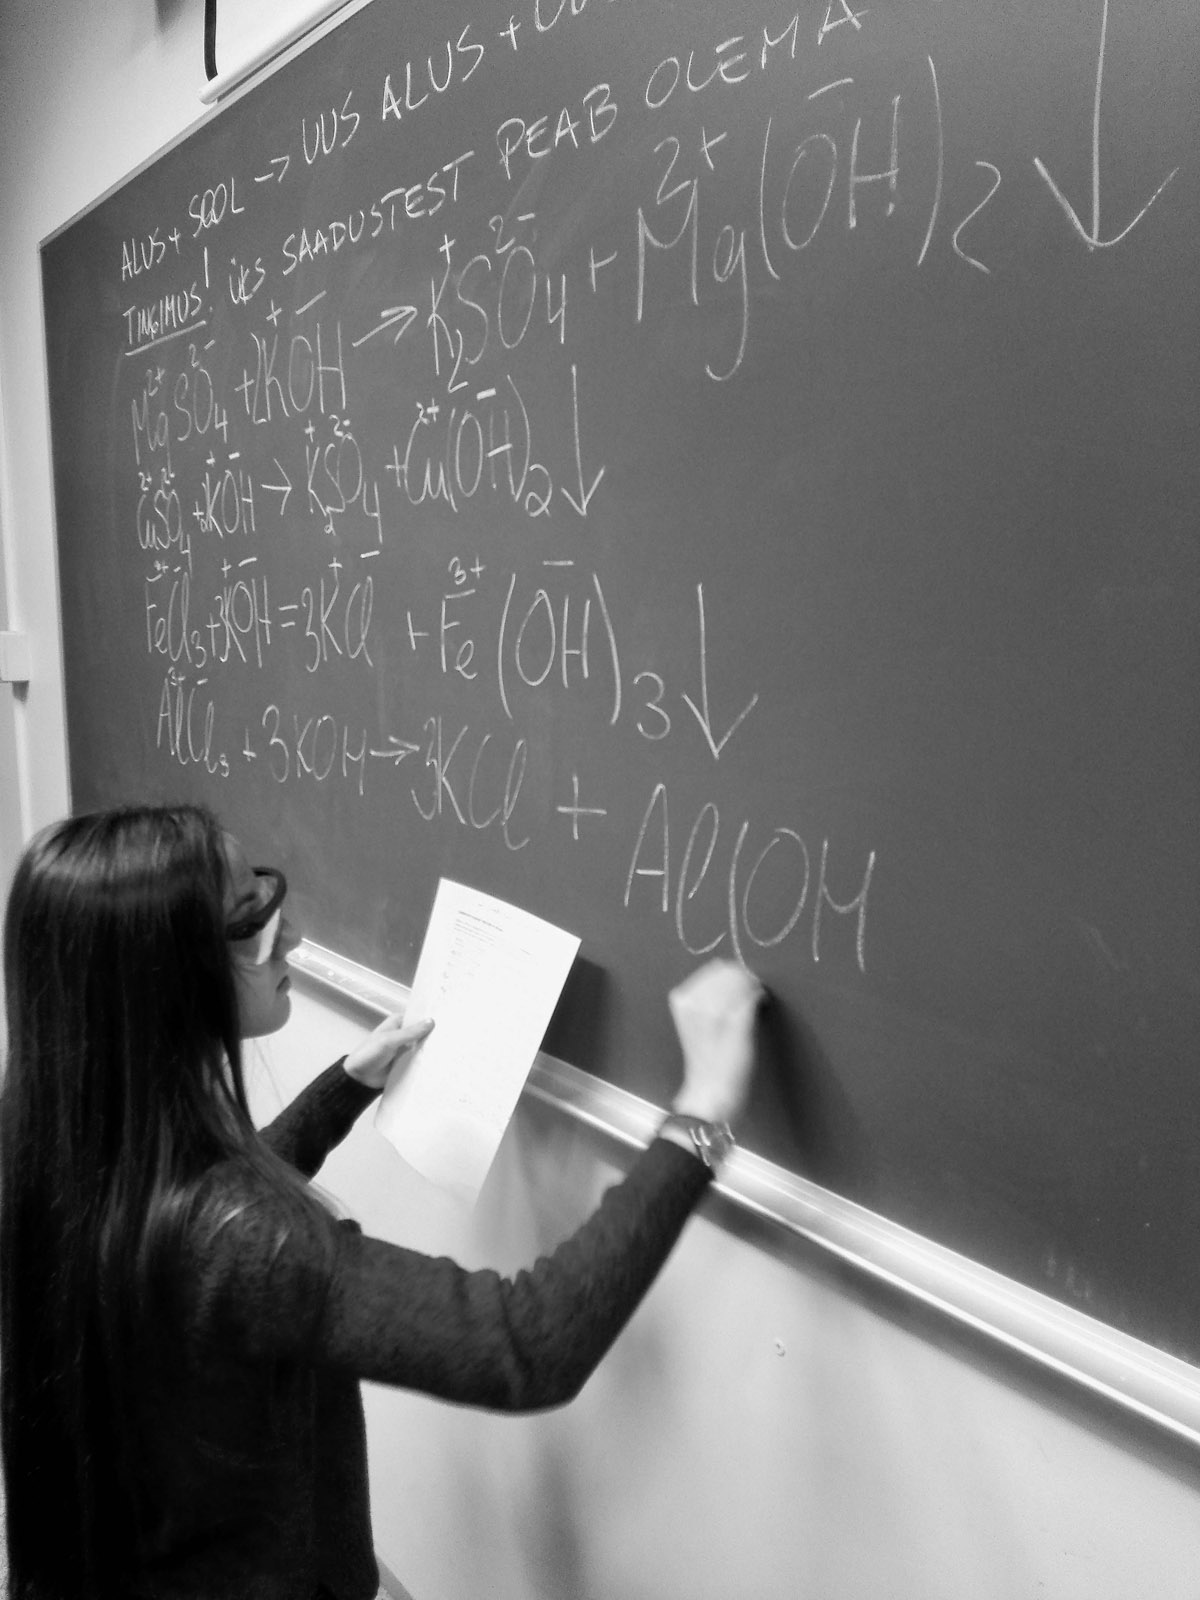 ALUS + SOOL → UUS ALUS + UU
TINGIMUS! ÜKS SAADUSTEST PEAB OLEMA ↓
Mg²⁺SO₄²⁻ + 2K⁺OH⁻ → K₂⁺SO₄²⁻ + Mg²⁺(OH⁻)₂
Cu²⁺SO₄²⁻ + 2K⁺OH⁻ → K₂⁺SO₄²⁻ + Cu²⁺(OH⁻)₂ ↓
Fe³⁺Cl₃⁻ + 3K⁺OH⁻ = 3K⁺Cl⁻ + Fe³⁺(OH⁻)₃ ↓
Al³⁺Cl₃⁻ + 3KOH → 3KCl + Al(OH